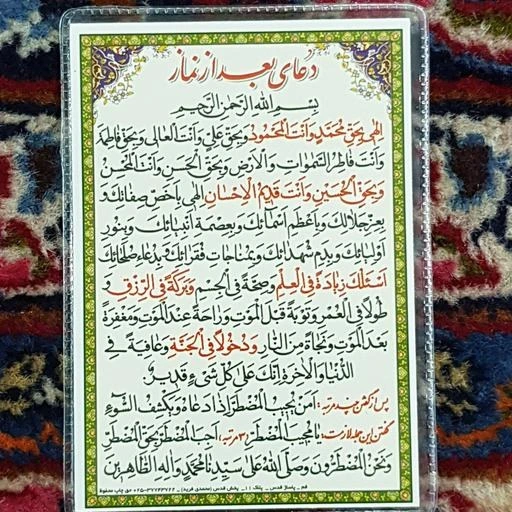 دعای بعد از نماز
بِسْمِ اللهِ الرَّحْمنِ الرَّحیمِ
اِلهی بِحَقِّ مُحَمَّدٍ وَاَنْتَ الْمَحْمُودُ وَبِحَقِّ عَلِیٍّ وَاَنْتَ الْعالی وَبِحَقِّ فاطِمَةَ
وَاَنْتَ فاطِرُ السَّمواتِ وَالْاَرْضِ وَبِحَقِّ الْحَسَنِ وَاَنْتَ الْمُحْسِنُ
وَبِحَقِّ الْحُسَیْنِ وَاَنْتَ قَدیمُ الْاِحْسانِ اِلهی بِاَخَصِّ صِفاتِكَ وَ
بِعِزِّ جَلالِكَ وَبِاَعْظَمِ اَسْمائِكَ وَبِعِصْمَةِ اَنْبِیائِكَ وَبِنُورِ
اَوْلِیائِكَ وَبِدَمِ شُهَدائِكَ وَبِمُناجاتِ فُقَرائِكَ وَبِدُعاءِ صُلَحائِكَ
اَسْئَلُكَ زِیادَةً فِی الْعِلْمِ وَصِحَّةً فِی الْجِسْمِ وَبَرَكَةً فِی الرِّزْقِ وَ
طُولاً فِی الْعُمْرِ وَتَوْبَةً قَبْلَ الْمَوْتِ وَراحَةً عِنْدَ الْمَوْتِ وَمَغْفِرَةً
بَعْدَ الْمَوْتِ وَنَجاةً مِنَ النّارِ وَدُخُولاً فِی الْجَنَّةِ وَعافِیَةً فِی
الدُّنْیا وَالْاخِرَةِ اِنَّكَ عَلی كُلِّ شَیْءٍ قَدیرٌ
پس از گفتن چند مرتبه: اَمَّنْ یُجیبُ الْمُضْطَرَّ اِذا دَعاهُ وَیَكْشِفُ السُّوءَ
گفتن این جمله لازمست: یا مُجیبَ الْمُضْطَرِّ (۳ مرتبه) اَجِبِ الْمُضْطَرَّ بِحَقِّ الْمُضْطَرِّ
وَنَحْنُ الْمُضْطَرُّونَ وَصَلَّی اللهُ عَلی سَیِّدِنا مُحَمَّدٍ وَالِهِ الطّاهِرینَ
قم ـ پاساژ قدس ـ پلاک ۱۱۱ ـ پخش قدس (محمدی فرید) ـ ۰۲۵-۳۷۷۴۳۷۶۲ حق چاپ محفوظ